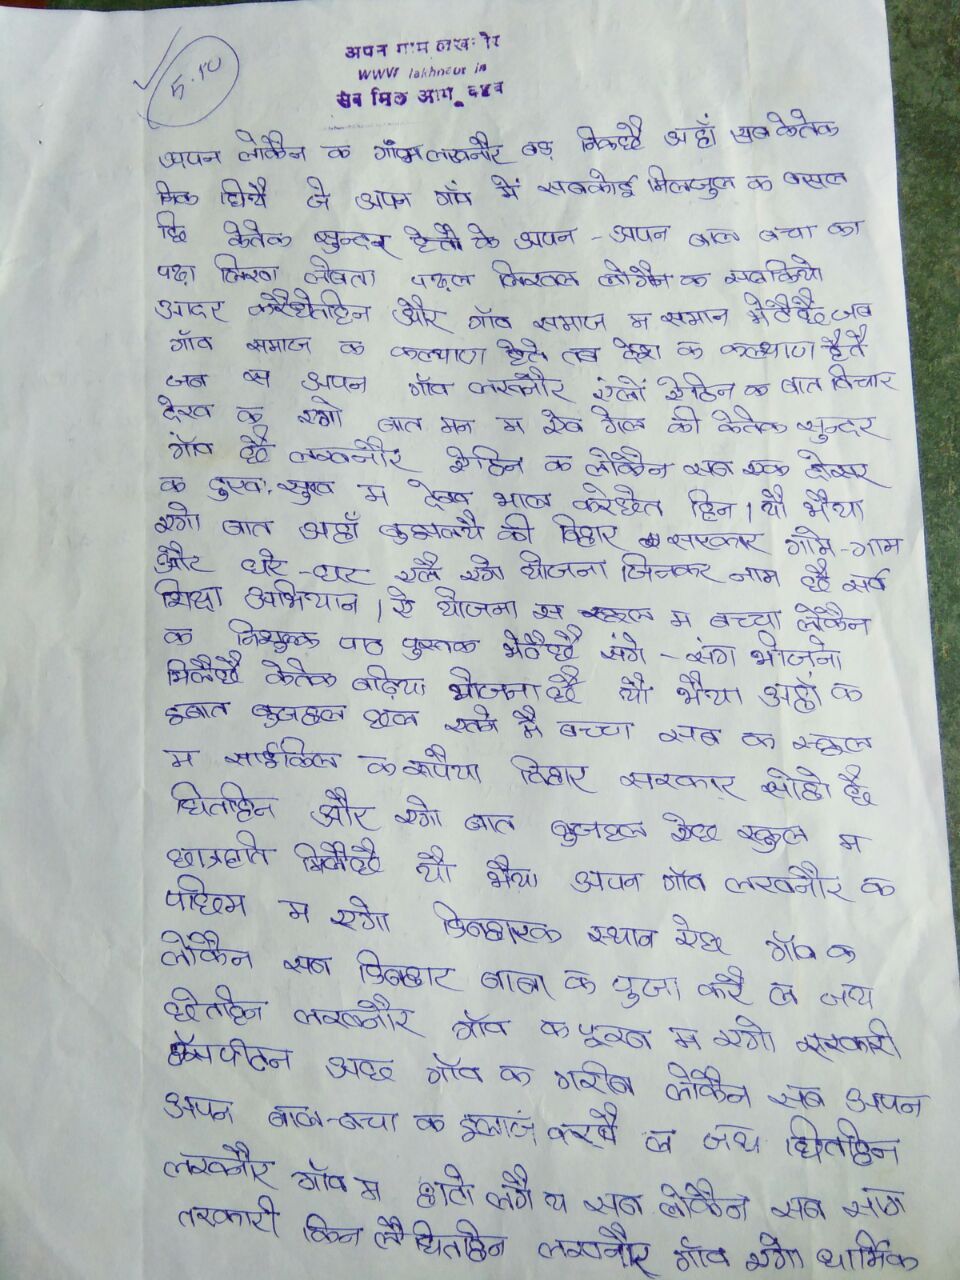 5.10
अपन गाम लखनौर
WWW lakhnour in
सब मिल आगू बढब
अपन लोकैन क गाँव लखनौर बड़ निकछै अहाँ सब केतेक
निक छियै जे अपन गाँव में सबकोई मिलजुल क बसल
छि केतेक सुन्दर हेतौ के अपन - अपन बाल बच्चा का
पढ़ा लिखा लेबता पढ़ल लिखल लोगैन क सबकियो
आदर करैछेतहिन और गाँव समाज म समान भेटैछै जब
गाँव समाज क कल्याण हेतै तब देश क कल्याण हैतै
जब स अपन गाँव लखनौर एलौं ऐठिन क बात विचार
देख क एगो बात मन म ऐब गेल की केतेक सुन्दर
गाँव छै लखनौर ऐठिन क लोकैन सब एक दोसर
क दुख, सुख म देख भाल करैछेत हिन । यौ भैया
एगो बात अहाँ बुझलियै की बिहार सरकार गामे - गाम
और घरे - घर एलै एगो योजना जिनकर नाम छै सर्व
शिक्षा अभियान । ऐ योजना स स्कूल म बच्चा लोकैन
क निशुल्क पाठ पुस्तक भेटैछै संगे - संग भोजनो
मिलैछै केतेक बढ़िया योजना छै यौ भैया अहाँ क
इबात बुजहल अछ एतबे नै बच्चा सब क स्कूल
म साईकिल क रूपैया बिहार सरकार सेहो दैछ
छितहिन और एगो बात बुजहल ऐछ स्कुल म
छात्रवृति मिलैछै यौ भैया अपन गाँव लखनौर क
पछिम म एगो डिहबारक स्थान ऐछ गाँव क
लोकैन सब डिहबार बाबा क पुजा करै ल जाय
छेतहिन लखनौर गाँव क पूरब म एगो सरकारी
हॅास्पीटल अछ गाँव क गरीब लोकैन सब अपन
अपन बाल-बच्चा क इलाज करबै ल जाय छितहिन
लखनौर गाँव म हाटो लगै य सब लोकैन सब साग
तरकारी किन लै छितहिन लखनौर गाँव एगो धार्मिक